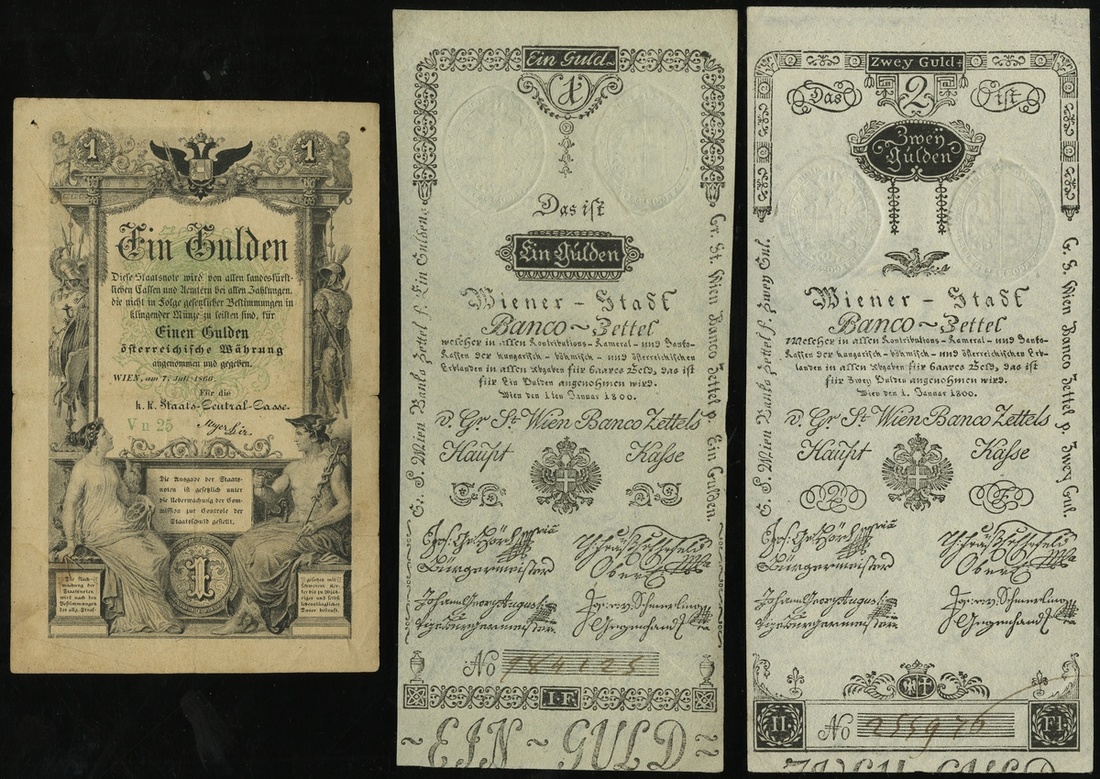 1 1
Ein Gulden
Diese Staatsnote wird von allen landesfürst-
lichen Cassen und Aemtern bei allen Zahlungen,
die nicht in Folge gesetzlicher Bestimmungen in
klingender Münze zu leisten sind, für
Einen Gulden
österreichische Währung
angenommen und gegeben.
WIEN, am 7. Juli 1866.
Für die
k. k. Staats-Central-Casse.
Vn 25
Die Ausgabe der Staats-
noten ist gesetzlich unter
die Ueberwachung der Com-
mission zur Controle der
Staatsschuld gestellt.
1
Die Nach-
machung der
Staatsnoten
wird nach den
Bestimmungen
des allg. Straf-
gesetzes mit
schwerem Ker-
ker bis zu 20jäh-
riger und selbst
lebenslänglicher
Dauer bestraft.
Ein Guld
1
Das ist
Ein Gulden
Wiener - Stadt
Banco ~ Zettel
welcher in allen Kontributions - Kameral - und Banko-
Kassen der hungarisch - böhmisch - und österreichischen
Erblanden in allen Abgaben für baares Geld, das ist
für Ein Gulden angenommen wird.
Wien den 1ten Januar 1800.
v. Gr St Wien Banco Zettels
Haupt Kasse
Bürgermeister
Johann Georg Augusti
Vizebürgermeister
No 984125
I·F
EIN ~ GULD
G. S. Wien Banko Zettel f. Ein Gulden
Gr. St. Wien Banco Zettel p. Ein Gulden.
Zwey Guld
Das 2 ist
Zwey
Gulden
Wiener - Stadt
Banco ~ Zettel
welcher in allen Kontributions - Kameral - und Banko-
Kassen der hungarisch - böhmisch - und österreichischen Erb-
landen in allen Abgaben für baares Geld, das ist
für Zwey Gulden angenommen wird.
Wien den 1. Januar 1800.
v. Gr St Wien Banco Zettels
Haupt Kasse
2 F
Bürgermeister
Johann Georg Augusti
Vizebürgermeister
II. No 255976 Fl.
ZWEY GULD
G. S. Wien Banko Zettel f. Zwey Gul.
G. S. Wien Banco Zettel p. Zwey Gul.